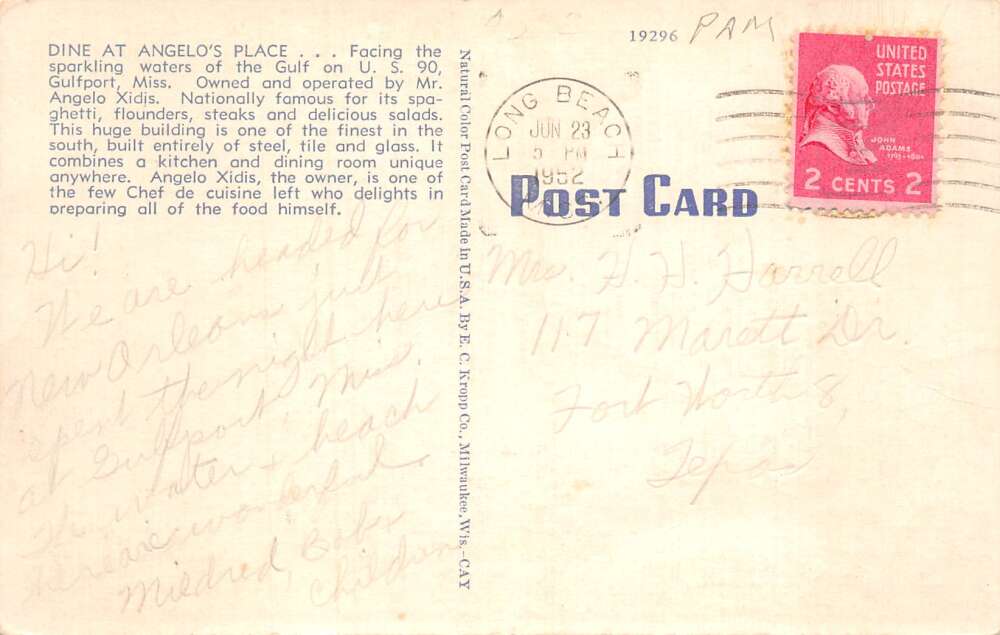 19296 PAM
DINE AT ANGELO'S PLACE . . . Facing the
sparkling waters of the Gulf on U. S. 90,
Gulfport, Miss. Owned and operated by Mr.
Angelo Xidis. Nationally famous for its spa-
ghetti, flounders, steaks and delicious salads.
This huge building is one of the finest in the
south, built entirely of steel, tile and glass. It
combines a kitchen and dining room unique
anywhere. Angelo Xidis, the owner, is one of
the few Chef de cuisine left who delights in
preparing all of the food himself.
Hi!
We are headed for
New Orleans just
spent the night here
at Gulfport Miss.
The water + beach
here are wonderful.
Mildred, Bob +
Children
Natural Color Post Card Made in U.S.A. By E. C. Kropp Co., Milwaukee, Wis.-CAY
LONG BEACH
JUN 23
5 PM
1952
MISS
UNITED
STATES
POSTAGE
JOHN
ADAMS
1797-1801
2 CENTS 2
POST CARD
Mrs. H. H. Harrell
117 Marett Dr.
Fort Worth 8,
Texas